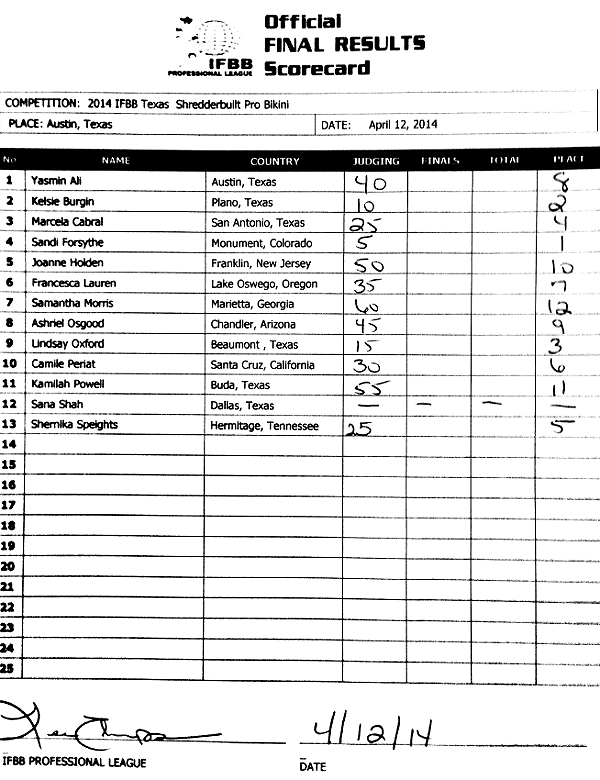 Official
FINAL RESULTS
Scorecard
IFBB
PROFESSIONAL LEAGUE
COMPETITION: 2014 IFBB Texas Shredderbuilt Pro Bikini
PLACE: Austin, Texas DATE: April 12, 2014
No NAME COUNTRY JUDGING FINALS TOTAL PLACE
1 Yasmin Ali Austin, Texas 40 8
2 Kelsie Burgin Plano, Texas 10 2
3 Marcela Cabral San Antonio, Texas 25 4
4 Sandi Forsythe Monument, Colorado 5 1
5 Joanne Holden Franklin, New Jersey 50 10
6 Francesca Lauren Lake Oswego, Oregon 35 7
7 Samantha Morris Marietta, Georgia 60 12
8 Ashriel Osgood Chandler, Arizona 45 9
9 Lindsay Oxford Beaumont , Texas 15 3
10 Camile Periat Santa Cruz, California 30 6
11 Kamilah Powell Buda, Texas 55 11
12 Sana Shah Dallas, Texas — — —
13 Shernika Speights Hermitage, Tennessee 25 5
14
15
16
17
18
19
20
21
22
23
24
25
4/12/14
IFBB PROFESSIONAL LEAGUE DATE